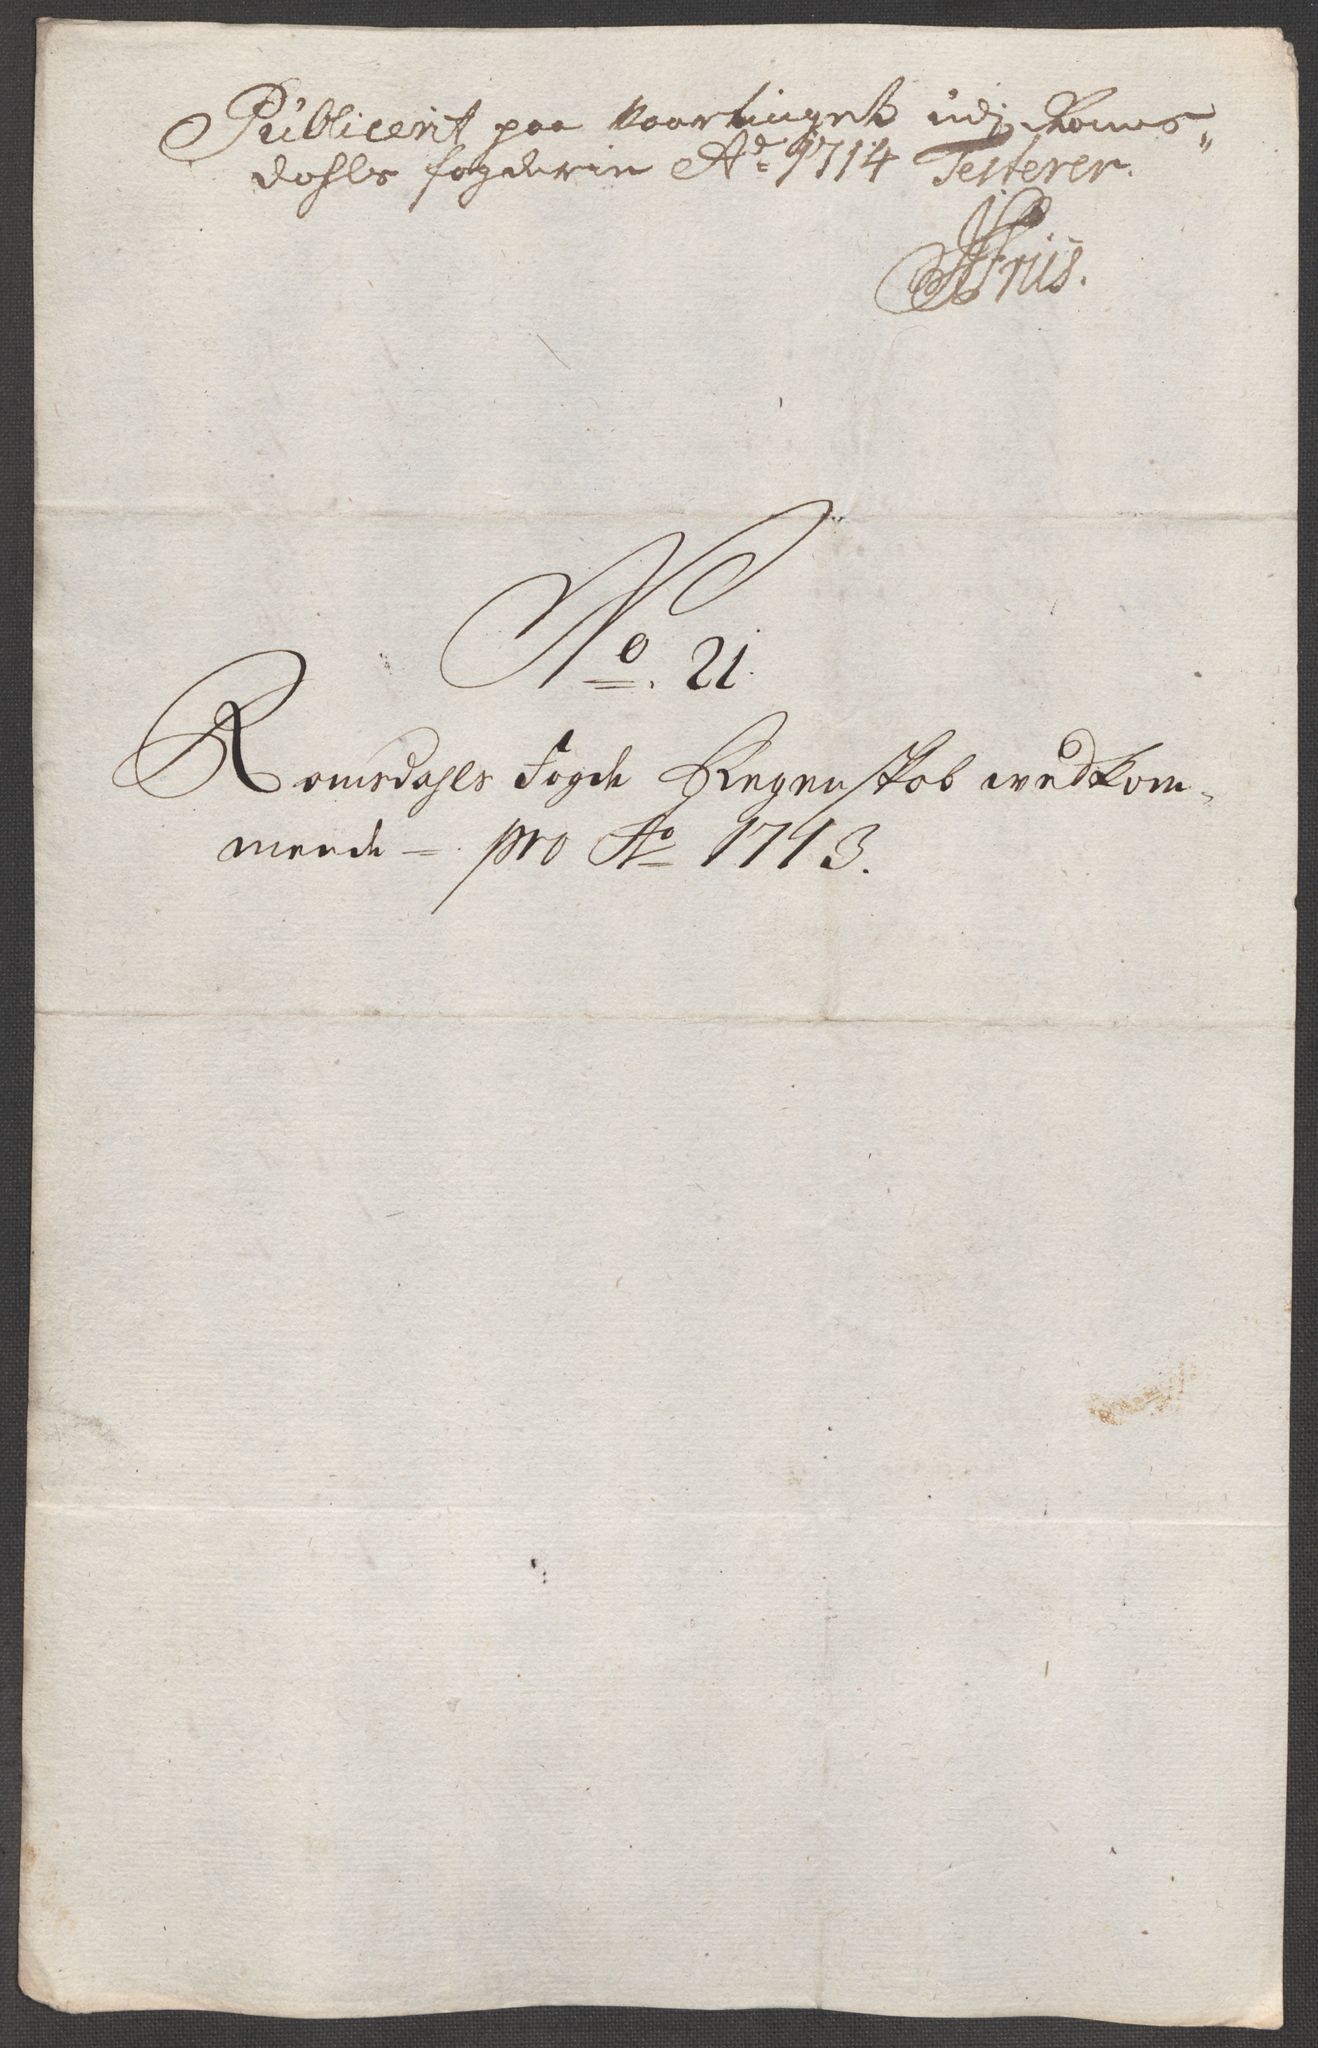 Publicerit paa Vaartinget udj Roms„
dahls fogderie Ao 1714 Testerer.
Friis.
No. 21.
Romsdahls Fogde Regenskab wedkom„
mende – pro Ao 1713.